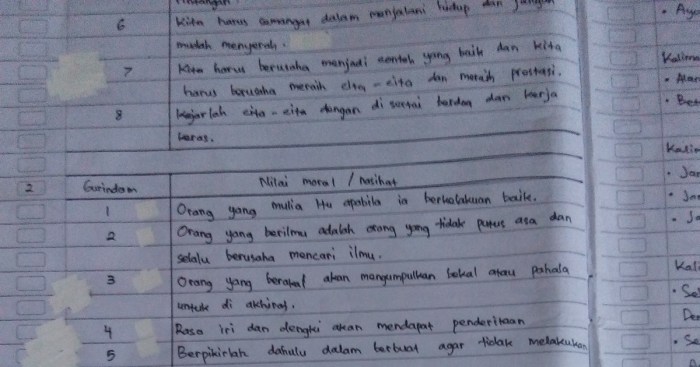 6 Kita harus semangat dalam menjalani hidup dan jangan
mudah menyerah.
7 Kita harus berusaha menjadi contoh yang baik dan kita
harus berusaha meraih cita-cita dan meraih prestasi.
8 Kejarlah cita-cita dengan di sertai berdoa dan kerja
keras.
2 Gurindam Nilai moral / nasihat
1 Orang yang mulia itu apabila ia berkelakuan baik.
2 Orang yang berilmu adalah orang yang tidak putus asa dan
selalu berusaha mencari ilmu.
3 Orang yang berakal akan mengumpulkan bekal atau pahala
untuk di akhirat.
4 Rasa iri dan dengki akan mendapat penderitaan
5 Berpikirlah dahulu dalam berbuat agar tidak melakukan